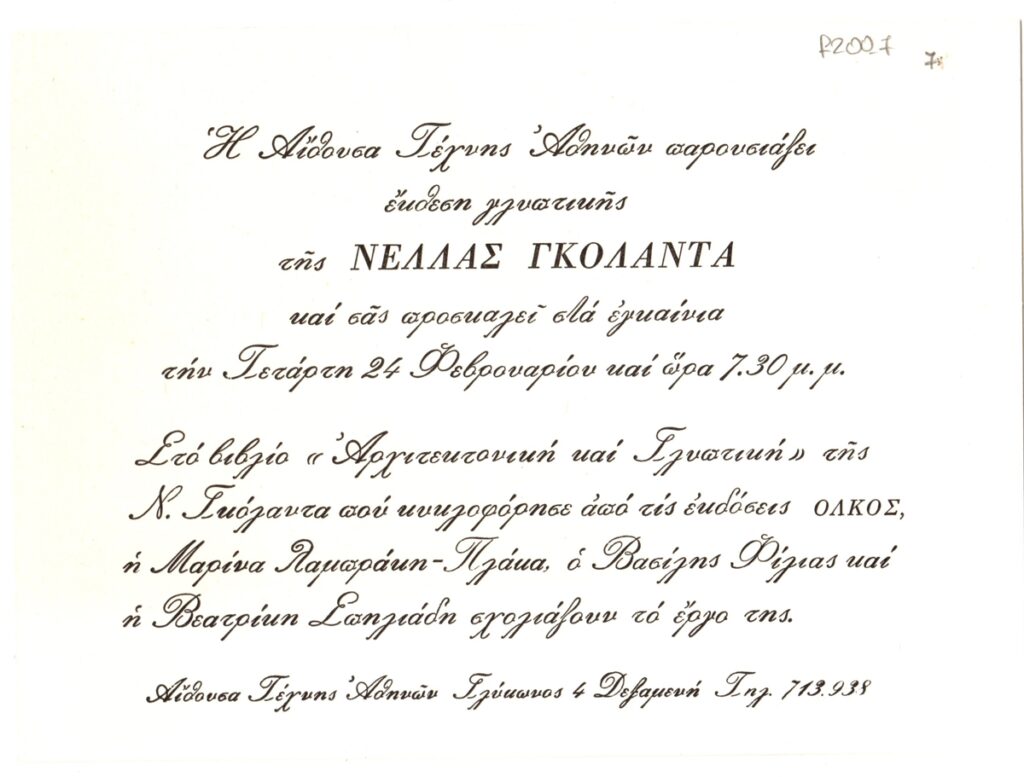 R200.7
7.
Ἡ Αἴθουσα Τέχνης Ἀθηνῶν παρουσιάζει
ἔκθεση γλυπτικῆς
τῆς ΝΕΛΛΑΣ ΓΚΟΛΑΝΤΑ
καί σᾶς προσκαλεῖ στά ἐγκαίνια
τήν Τετάρτη 24 Φεβρουαρίου καί ὥρα 7.30 μ.μ.
Στό βιβλίο «Ἀρχιτεκτονική καί Γλυπτική» τῆς
Ν. Γκόλαντα πού κυκλοφόρησε ἀπό τίς ἐκδόσεις ΟΛΚΟΣ,
ἡ Μαρίνα Λαμπράκη-Πλάκα, ὁ Βασίλης Φίλιας καί
ἡ Βεατρίκη Σπηλιάδη σχολιάζουν τό ἔργο της.
Αἴθουσα Τέχνης Ἀθηνῶν Γλύκωνος 4 Δεξαμενή Τηλ. 713.938